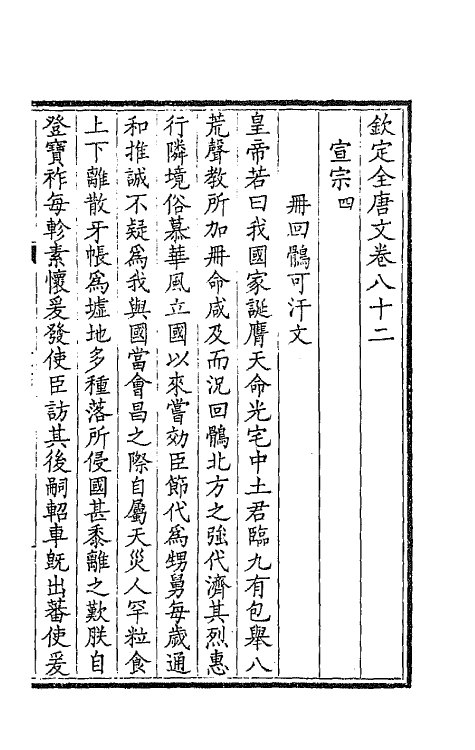 欽定全唐文卷八十二
宣宗四
冊回鶻可汗文
皇帝若曰我國家誕膺天命光宅中土君臨九有包舉八
荒聲教所加冊命咸及而況回鶻北方之強代濟其烈惠
行隣境俗慕華風立國以來嘗効臣節代爲甥舅每歲通
和推誠不疑爲我與國當會昌之際自屬天災人罕粒食
上下離散牙帳爲墟地多種落所侵國甚黍離之歎朕自
登寶祚每軫素懷爰發使臣訪其後嗣軺車旣出蕃使爰